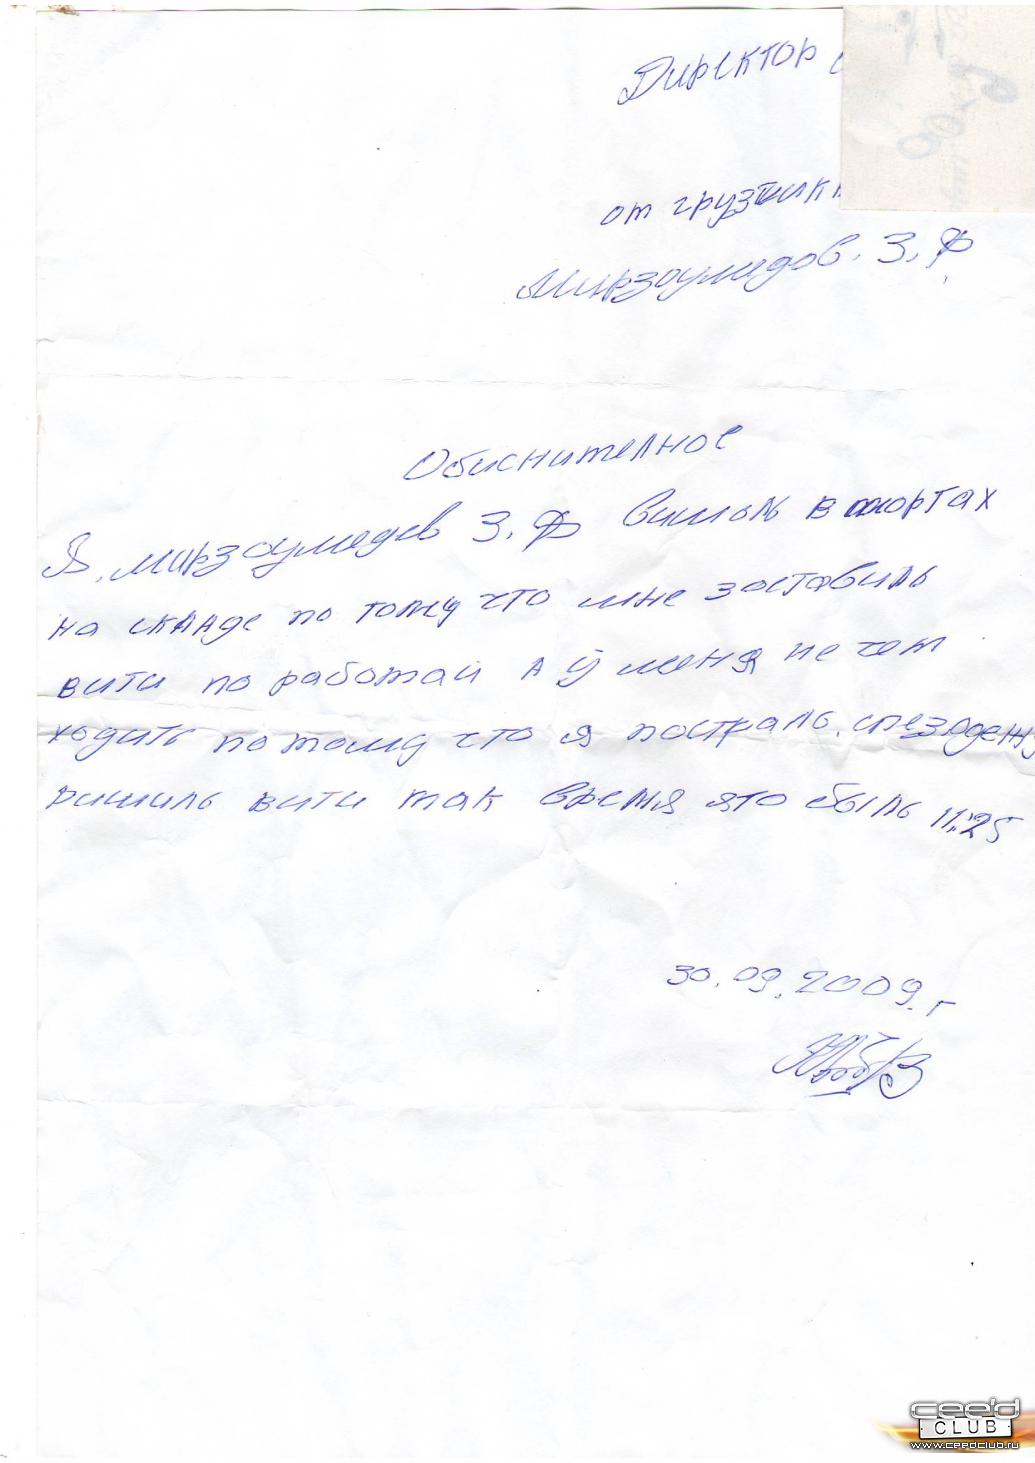 Директор
от грузчика
Мирзоумедов. З. Ф.
Обиснителное
Я, мирзоумедев З. Ф вишоль в шортах
на складе по тому что мне заставиль
вити по работай А ў меня не чем
ходить по тому что я постраль. спезодежу
ришиль вити так время это быль 11:25
30.09.2009.г
cee'd
CLUB
www.ceedclub.ru